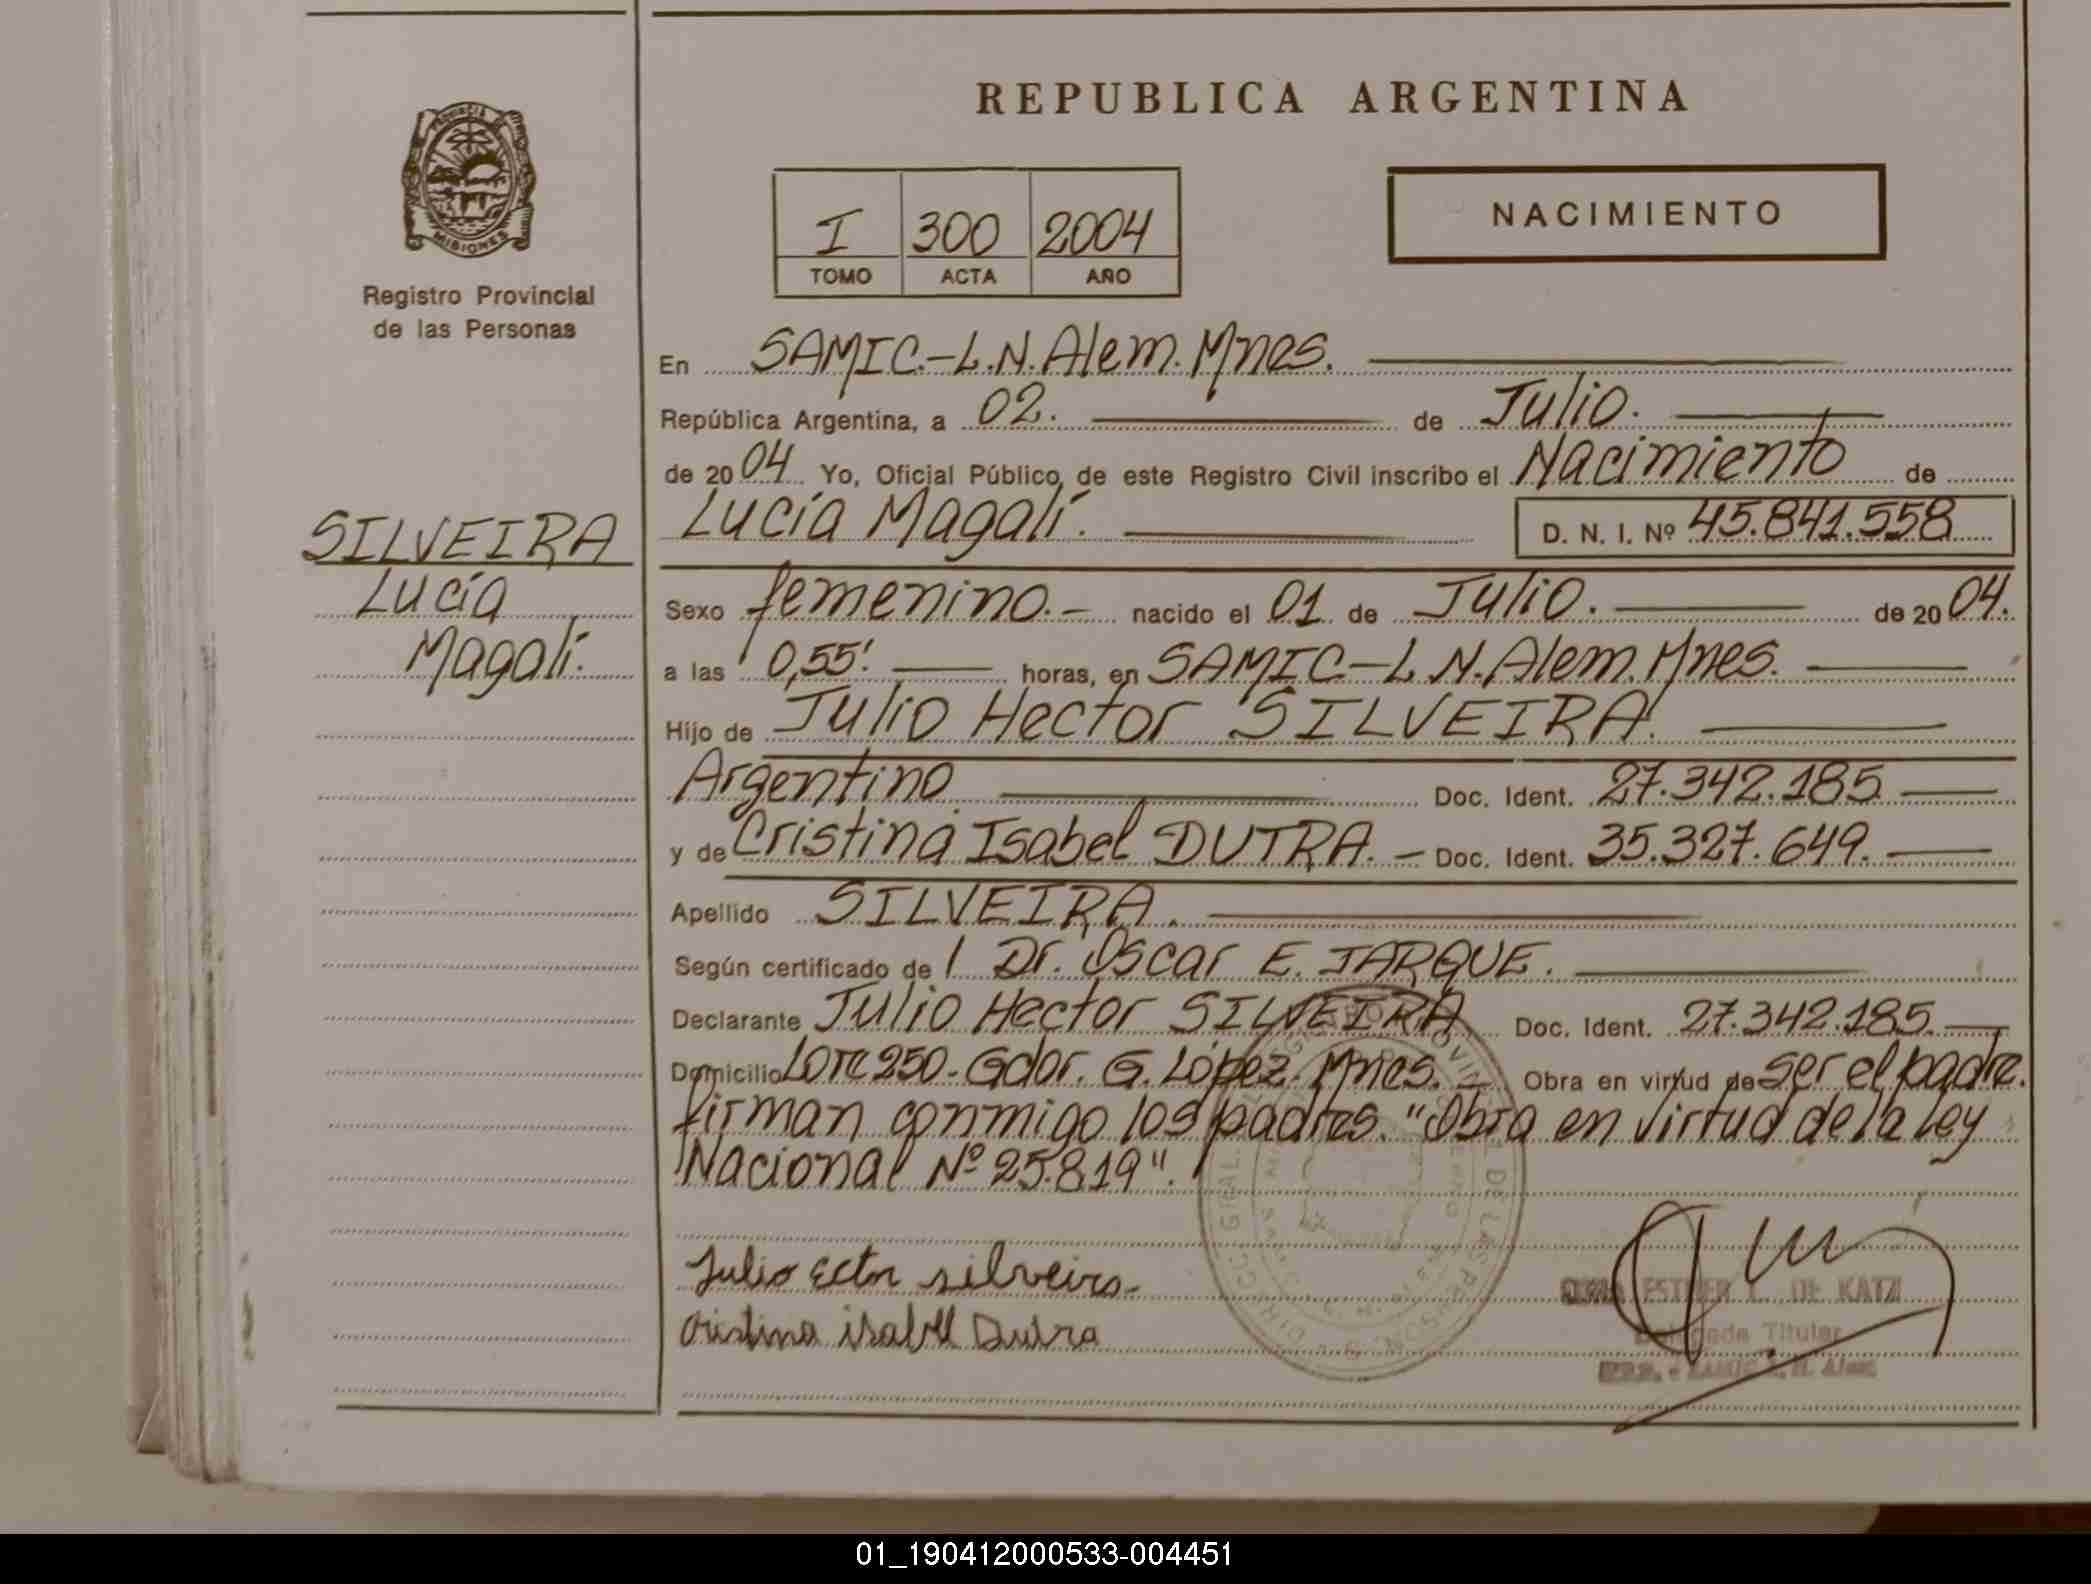 REPUBLICA ARGENTINA
PROVINCIA DE
MISIONES
Registro Provincial
de las Personas
I 300 2004
TOMO ACTA AÑO
NACIMIENTO
En SAMIC.-L.N.Alem.Mnes.
República Argentina, a 02. de Julio.
de 2004 Yo, Oficial Público de este Registro Civil inscribo el Nacimiento de
Lucía Magalí. D. N. I. Nº 45.841.558
SILVEIRA
Lucía
Magalí.
Sexo femenino.- nacido el 01 de Julio. de 2004.
a las 0,55'. horas, en SAMIC-L.N.Alem.Mnes.
Hijo de Julio Hector SILVEIRA.
Argentino Doc. Ident. 27.342.185
y de Cristina Isabel DUTRA.- Doc. Ident. 35.327.649.
Apellido SILVEIRA.
Según certificado de l Dr. Oscar E. JARQUE.
Declarante Julio Hector SILVEIRA Doc. Ident. 27.342.185.
Domicilio Lote 250-Gdor. G. López. Mnes.- Obra en virtud de ser el padre.
firman conmigo los padres. "Obra en virtud de la ley
Nacional Nº 25.819".
Julio Ector silveira
cristina isabel Dutra
ESTHER L. DE KATZ
Delegada Titular
L. N. Alem
01_190412000533-004451